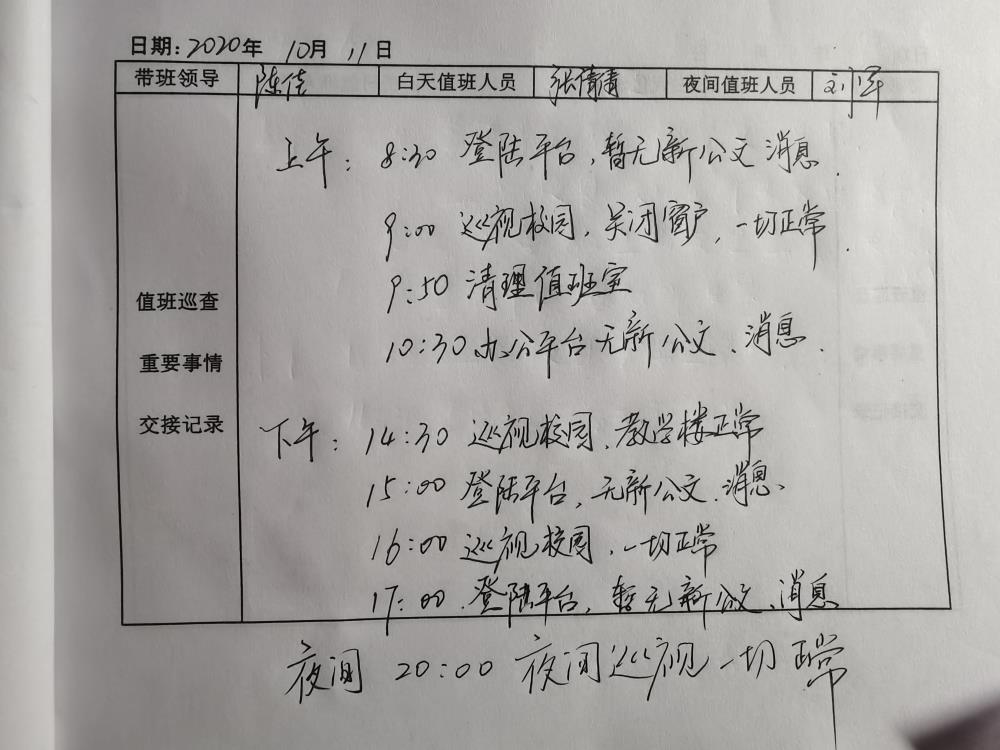 日期：2020年 10月 11日
带班领导 陈佳 白天值班人员 张倩倩 夜间值班人员 刘军
上午：8:30 登陆平台，暂无新公文 消息.
9:00 巡视校园，关闭窗户，一切正常.
9:50 清理值班室
10:30 办公平台无新公文、消息.
值班巡查
重要事情
交接记录
下午：14:30 巡视校园、教学楼正常
15:00 登陆平台，无新公文、消息、
16:00 巡视校园，一切正常
17:00、登陆平台，暂无新公文、消息
夜间 20:00 夜间巡视 一切正常